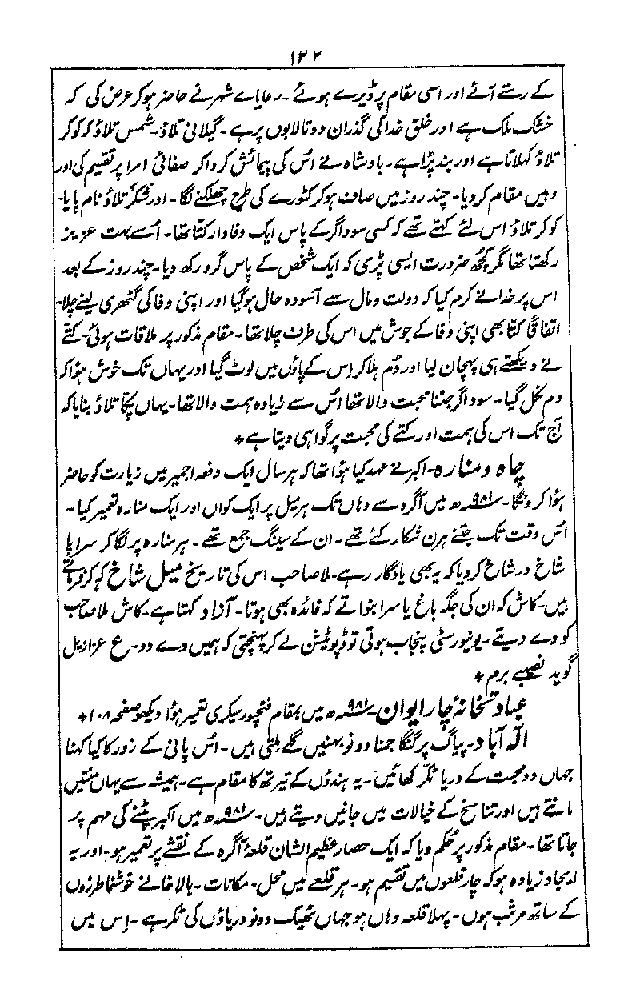 ۱۳۲
کے رستے آئے اور اسی مقام پر ڈیرے ہوئے - رعایاے شہر نے حاضر ہو کر عرض کی کہ
خشک ملک ہے اور خلق خدا کی گذران دو تالابوں پر ہے - گیلانی تلاؤ - شمس تلاؤ کو کوکر
تلاؤ کہلاتا ہے اور بند پڑا ہے - بادشاہ نے اس کی پیمائش کروا کر صفائی امرا پر تقسیم کی اور
وہیں مقام کر دیا - چند روز میں صاف ہو کر کٹورے کی طرح چھلکنے لگا - اور شکر تلاؤ نام پایا -
کوکر تلاؤ اس لئے کہتے تھے کہ کسی سوداگر کے پاس ایک وفادار کتا تھا - اُسے بہت عزیز
رکھتا تھا مگر کچھ ضرورت ایسی پڑی کہ ایک شخص کے پاس گرو رکھ دیا - چند روز کے بعد
اس پر خدا نے کرم کیا کہ دولت و مال سے آسودہ حال ہو گیا اور اپنی وفا کی گٹھری لینے چلا -
اتفاقاً کتا بھی اپنی وفا کے جوش میں اس کی طرف چلا تھا - مقام مذکور پر ملاقات ہوئی - کتے
نے دیکھتے ہی پہچان لیا اور دُم ہلا کر اس کے پاؤں میں لوٹ گیا اور یہاں تک خوش ہوا کہ
دم نکل گیا - سوداگر جتنا محبت والا تھا اُس سے زیادہ ہمت والا تھا - یہاں پکا تلاؤ بنایا کہ
آج تک اس کی ہمت اور کتے کی محبت پر گواہی دیتا ہے *
چاہ و منارہ - اکبر نے عہد کیا ہوا تھا کہ ہر سال ایک دفعہ اجمیر میں زیارت کو حاضر
ہوا کرونگا - ۹۸۱ھ میں آگرہ سے وہاں تک ہر میل پر ایک کواں اور ایک منارہ تعمیر کیا -
اُس وقت تک جتنے ہرن شکار کئے تھے - ان کے سینگ جمع تھے - ہر منارہ پر لگا کر سراپا
شاخ در شاخ کر دیا کہ یہ بھی یادگار رہے - ملا صاحب اس کی تاریخ میل شاخ کہہ کر فرماتے
ہیں - کاش کہ ان کی جگہ باغ یا سرا بنواتے کہ فائدہ بھی ہوتا - آزاد کہتا ہے - کاش ملا صاحب
کو دے دیتے - یونیورسٹی پنجاب ہوتی تو ڈیپوٹیشن لے کر پہنچتی کہ ہمیں دے دو - ع عزازیل
گوید نصیبے برم *
عبادتخانۂ چار ایوان - ۹۸۱ھ میں بمقام فتحپور سیکری تعمیر ہوا دیکھو صفحہ ۱۰۸ *
الٰہ آباد - پیاگ پر گنگا جمنا دونو بہنیں گلے ملتی ہیں - اُس پانی کے زور کا کیا کہنا
جہاں دو محبت کے دریا ٹکر کھائیں - یہ ہندوں کے تیرتھ کا مقام ہے - ہمیشہ سے یہاں منتیں
مانتے ہیں اور تناسخ کے خیالات میں جانیں دیتے ہیں - ۹۸۱ھ میں اکبر پٹنے کی مہم پر
جاتا تھا - مقام مذکور پر حکم دیا کہ ایک حصار عظیم الشان قلعۂ آگرہ کے نقشے پر تعمیر ہو - اور یہ
ایجاد زیادہ ہو کہ چار قلعوں میں تقسیم ہو - ہر قلعے میں محل - مکانات - بالا خانے خوشنما طرزوں
کے ساتھ مرتب ہوں - پہلا قلعہ وہاں ہو جہاں ٹھیک دونو دریاؤں کی ٹکر ہے - اِس میں